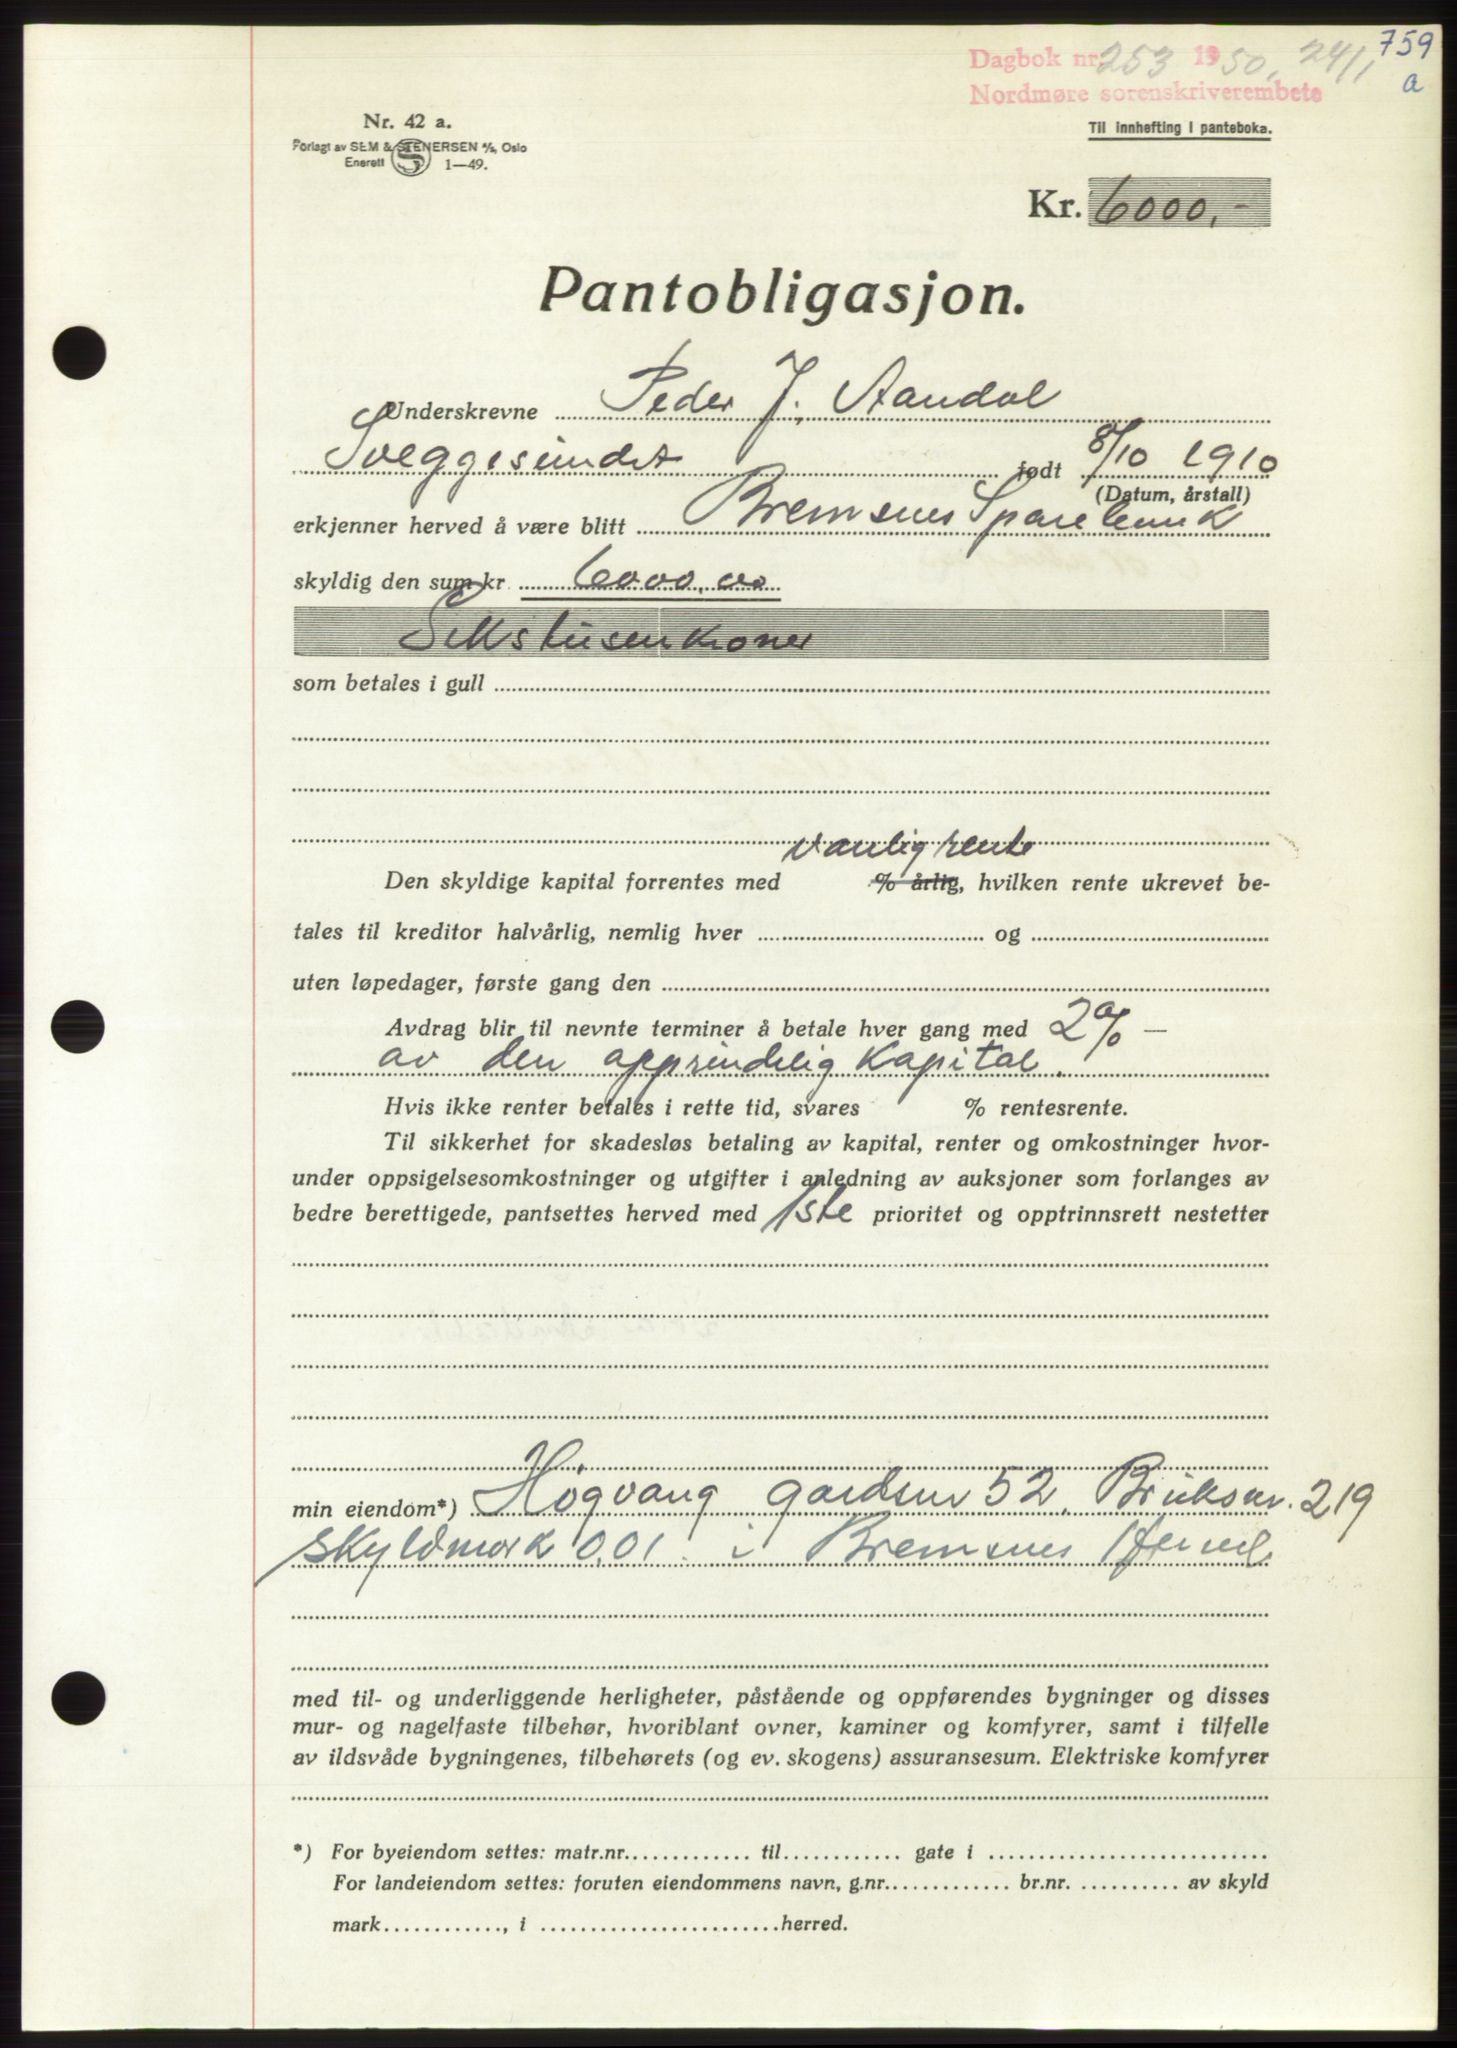 759
a
Dagbok nr. 253 1950, 24/1
Nordmøre sorenskriverembete
Nr. 42 a.
Forlagt av SEM & STENERSEN A/S, Oslo
Enerett S 1—49.
Til innhefting i panteboka.
Kr. 6000,-
Pantobligasjon.
Underskrevne Peder J. Aandal
Sveggesundet født 8/10 1910
(Datum, årstall)
erkjenner herved å være blitt Bremsnes Sparebank
skyldig den sum kr 6000,00
Sekstusenkroner
som betales i gull
vanlig rente
Den skyldige kapital forrentes med % årlig, hvilken rente ukrevet be-
tales til kreditor halvårlig, nemlig hver og
uten løpedager, første gang den
Avdrag blir til nevnte terminer å betale hver gang med 2% —
av den opprindelig Kapital.
Hvis ikke renter betales i rette tid, svares % rentesrente.
Til sikkerhet for skadesløs betaling av kapital, renter og omkostninger hvor-
under oppsigelsesomkostninger og utgifter i anledning av auksjoner som forlanges av
bedre berettigede, pantsettes herved med 1ste prioritet og opptrinnsrett nestetter
min eiendom*) Høgvang gardsnr 52, Bruksnr. 219
skyldmark 0,01. i Bremsnes
med til- og underliggende herligheter, påstående og oppførendes bygninger og disses
mur- og nagelfaste tilbehør, hvoriblant ovner, kaminer og komfyrer, samt i tilfelle
av ildsvåde bygningenes, tilbehørets (og ev. skogens) assuransesum. Elektriske komfyrer
*) For byeiendom settes: matr.nr. til gate i
For landeiendom settes: foruten eiendommens navn, g.nr. br.nr. av skyld
mark , i herred.